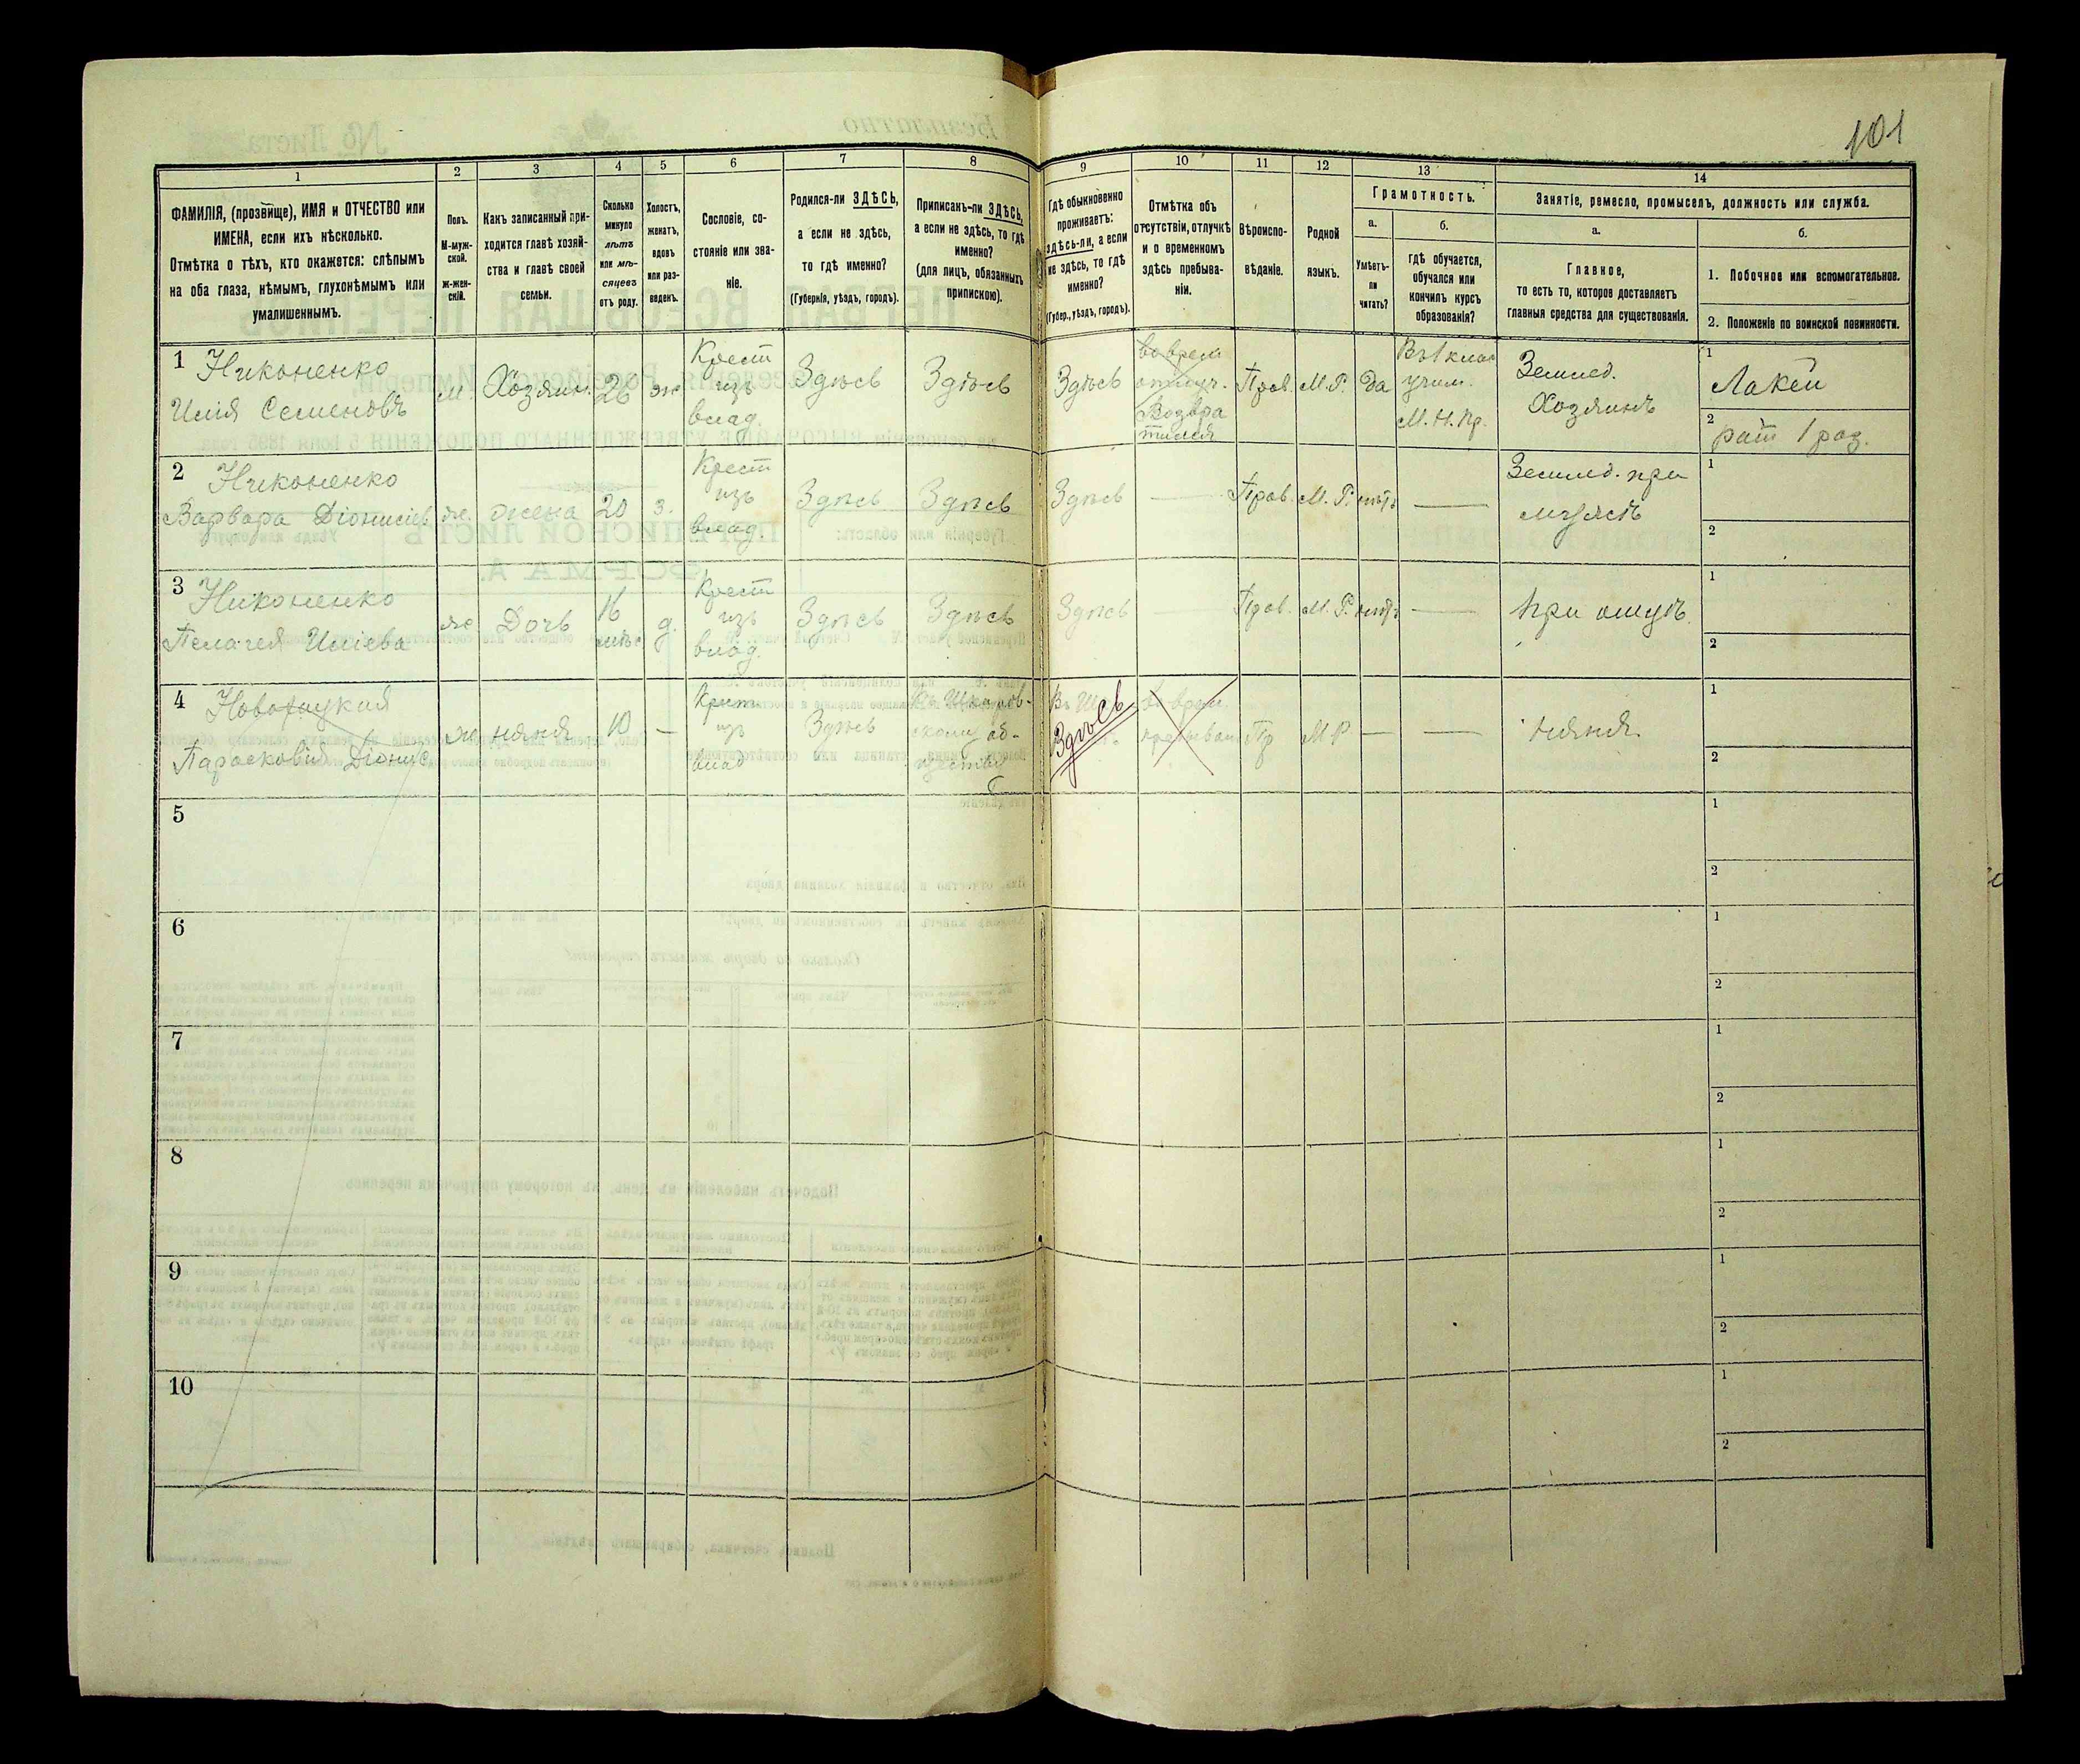 101
1
2
3
4
5
6
7
8
9
10
11
12
13
14
ФАМИЛІЯ, (прозвище), ИМЯ и ОТЧЕСТВО или
ИМЕНА, если ихъ нѣсколько.
Отмѣтка о тѣхъ, кто окажется: слѣпымъ
на оба глаза, нѣмымъ, глухонѣмымъ или
умалишеннымъ.
Полъ.
М-муж-
ской.
Ж-жен-
скій.
Какъ записанный при-
ходится главѣ хозяй-
ства и главѣ своей
семьи.
Сколько
минуло
лѣтъ
или мѣ-
сяцевъ
отъ роду.
Холостъ,
женатъ,
вдовъ
или раз-
веденъ.
Сословіе, со-
стояніе или зва-
ніе.
Родился-ли ЗДѢСЬ,
а если не здѣсь,
то гдѣ именно?
(Губернія, уѣздъ, городъ).
Приписанъ-ли ЗДѢСЬ,
а если не здѣсь, то гдѣ
именно?
(для лицъ, обязанныхъ
припискою).
Гдѣ обыкновенно
проживаетъ:
здѣсь-ли, а если
не здѣсь, то гдѣ
именно?
(Губер., уѣздъ, городъ).
Отмѣтка объ
отсутствіи, отлучкѣ
и о временномъ
здѣсь пребыва-
ніи.
Вѣроиспо-
вѣданіе.
Родной
языкъ.
Грамотность.
а.
Умѣетъ-
ли
читать?
б.
гдѣ обучается,
обучался или
кончилъ курсъ
образованія?
Занятіе, ремесло, промыселъ, должность или служба.
а.
Главное,
то есть то, которое доставляетъ
главныя средства для существованія.
б.
1. Побочное или вспомогательное.
2. Положеніе по воинской повинности.
1 Никоненко
Илія Семеновъ
м.
Хозяин.
26
ж
Крест
изъ
влад.
Здѣсь
Здѣсь
Здѣсь
во врем
отлуч.
Возвра
тился
Прав.
М.Р.
да
Въ 1 клас
учил.
М.Н.Пр.
Землед.
Хозяинъ
1
Лакей
2
рат 1 раз.
2 Никоненко
Варвара Діонисіев
ж.
жена
20
з.
Крест
изъ
влад.
Здѣсь
Здѣсь
Здѣсь
—
Прав.
М.Р.
нѣтъ
—
Землед. при
мужѣ
1
2
3 Никоненко
Пелагея Иліева
ж
Дочь
16
мѣс
д.
Крест
изъ
влад.
Здѣсь
Здѣсь
Здѣсь
—
Прав.
М.Р.
нѣтъ
—
при отцѣ.
1
2
4
Парасковія Діонис
ж
няня
10
—
Крест
изъ
влад
Здѣсь
об-
Здѣсь
во врем.
пребыван
Пр
М Р
—
—
няня.
1
2
5
1
2
6
1
2
7
1
2
8
1
2
9
1
2
10
1
2